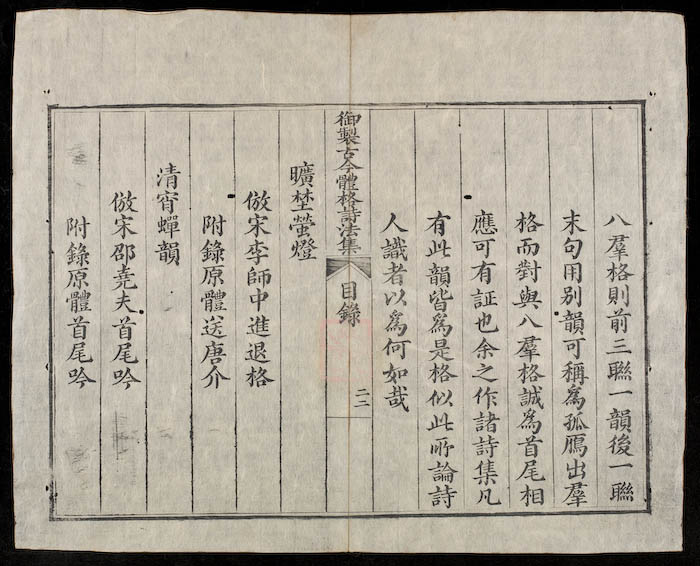 八羣格則前三聯一韻後一聯
末句用别韻可稱爲孤鴈出羣
格而對與八羣格誠爲首尾相
應可有証也余之作諸詩集凡
有此韻皆爲是格似此所論詩
人識者以爲何如哉
御製古今體格詩法集 目錄 二二
曠埜螢燈
倣宋李師中進退格
附錄原體送唐介
清宵蟬韻
倣宋邵堯夫首尾吟
附錄原體首尾吟